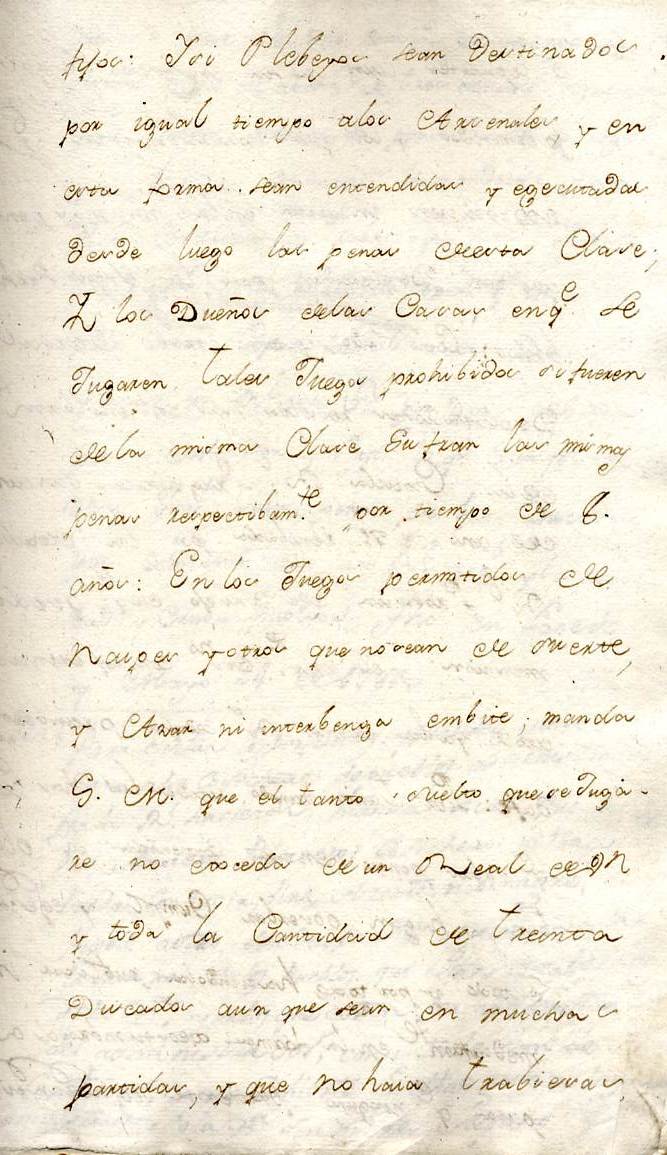 fijos: Y si Plebeyos sean Destinados
por igual tiempo alos Arsenales, y en
esta forma sean entendidas y egecutadas
desde luego las penas deesta Clase;
Y los Dueños delas Casas enqe. se
Jugaren tales Juegos prohibidos si fueren
dela misma Clase Sufran las mismas
penas respectibamte. por tiempo de 8.
años: En los Juegos permitidos de
Naipes y otros que no sean de suerte,
y Azar ni interbenga embite, manda
S. M. que el tanto suelto que se Juga-
re no exceda de un Real de Vn
y toda la Cantidad de treinta
Ducados aun que sean en muchas
partidas, y que no haia trabiesas